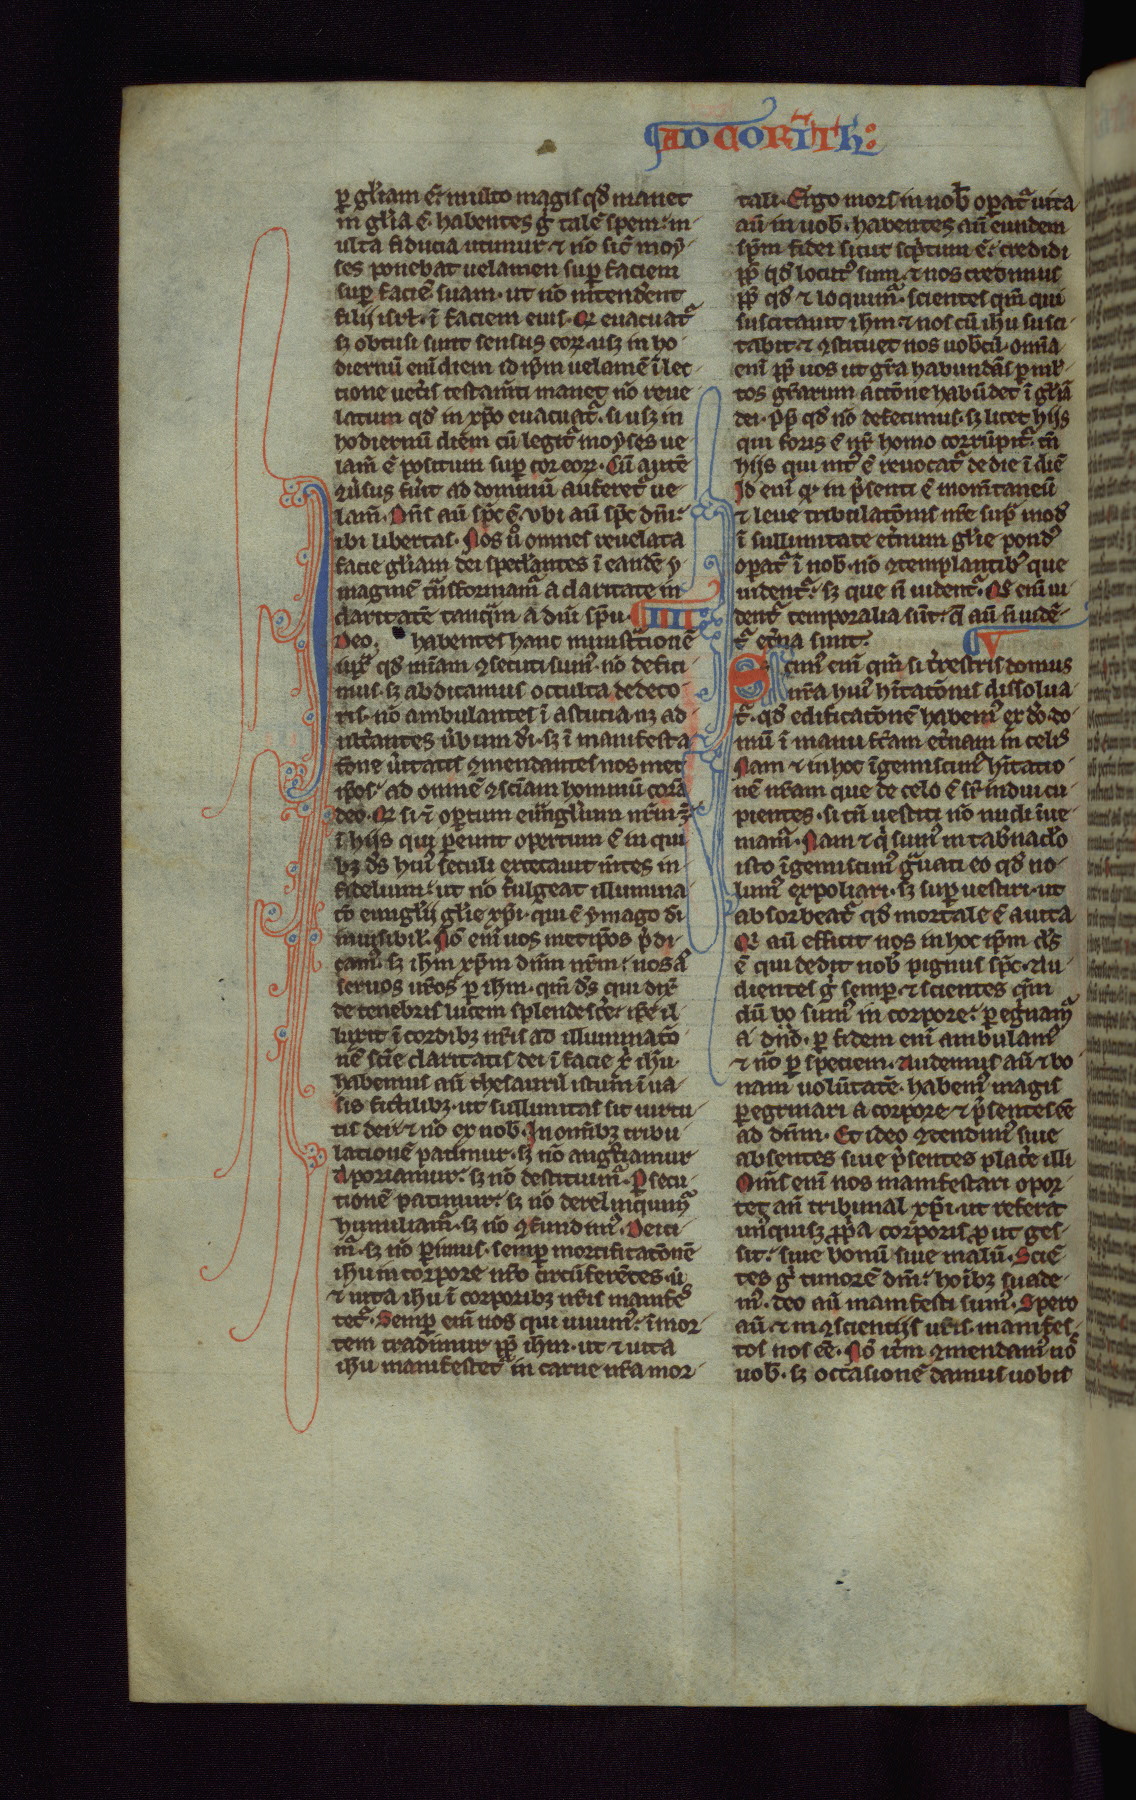 AD CORĪTH:
p gl̄iam ē. multo magis qd̄ manet
in gl̄ia ē. habentes g̅ talē spem. m
ulta fiducia utimur ⁊ nō sic̄ moy
ses ponebat uelamen sup̄ faciem
sup̄ faciē suam. ut nō intenderent
filij isrl̄. ī faciem eius. Qr̄ euacuat᷑
sꝫ obtusi sunt sensus eoꝝ. usqꝫ in ho
diernū enī diem id ip̄m uelamē ī lec
tione uet̄is testam̄ti manet nō reue
latum qd̄ in xp̄o euacuat᷑. si usqꝫ in
hodiernū diem cū legit᷑ moyses ue
lam̄ ē positum sup̄ cor eoꝝ. Cū autē
ꝯuersus fu̅it ad dominū auferet᷑ ue
lam̄. Dn̄s au̅ sp̄c ē. Vbi au̅ sp̄c dn̄i.
ibi libertas. Nos u̅ omnes reuelata
facie gl̄iam dei spec̄lantes ī eandē y
maginē tn̄sformam᷑ a claritate in
claritatē tanq̄m a dn̄i sp̄u. IIII
Deo. habentes hanc minist̄tionē
iux̄ qd̄ mīam ꝯsecuti sum᷒. nō defici
mus. sꝫ abdicamus occulta dedeco
ris. nō ambulantes ī astucia. nꝫ ad
ult̄antes u̅bum dī. sꝫ ī manifesta
t̄one u̅itatis ꝯmendantes nos met
ip̄os. ad omnē ꝯsciam hominū corā
deo. Qr̄ si ⁊ op̄tum euāngl̄ium nr̄m ē
ī hijs qui p̄eunt opertum ē in qui
bꝫ ds̄ hui᷒ seculi excecauit m̄tes in
fidelium. ut nō fulgeat illumina
t̄o euāngl̄ij gl̄ie xp̄i. qui ē ymago dī
inuisibil̄. Nō enī nos metip̄os p̄di
cam᷒. sꝫ ihm xp̄m dn̄m nr̄m. nos a̅
seruos ur̄os p ihm. qm̄ ds̄ qui dix̄
de tenebris lucem splendesce̅. ip̄e il
luxit ī cordibꝫ nr̄is ad illuminat̄o
nē sc̄ie claritatis dei ī facie x̄ ihu.
habemus au̅ thesaurū istum ī ua
sis fictilibꝫ. ut sullimitas sit uirtu
tis dei. ⁊ nō ex nob̄. In omībꝫ tribu
lationē patimur. sꝫ nō angustiamur
Aporiamur. sꝫ nō destituim᷑. P̄secu
tionē patimur. sꝫ nō derelinquim᷑
humiliam᷑. sꝫ nō ꝯfundim᷑. Deici
m᷑. sꝫ nō perimus. semp̄ mortificat̄onē
ihu in corpore nr̄o circūferētes. ū
⁊ uita ihu ī corporibꝫ nr̄is manifes
tet᷑. Semp̄ enī nos qui uiuim᷒. ī mor
tem tradimur pp̄ ihm. ut ⁊ uita
ihu manifestet᷑ in carne nr̄a mor
tali. Ergo mors in nob̄ operat᷑ uita
au̅ in uob̄. habentes au̅ eundem
sp̄m fidei sicut sc̄ptum ē. credidi
pp̄ qd̄ locut᷒ sum. ⁊ nos credimus
pp̄ qd̄ ⁊ loquim᷑. scientes qm̄ qui
suscitauit ihm ⁊ nos cū ihu susci
tabit. ⁊ ꝯstituet nos uobcū. omīa
enī pp̄ uos ut gr̄a habundās p ml̄
tos gr̄arum act̄one habūdet ī gl̄iā
dei. pp̄ qd̄ nō defecimus. sꝫ licet hijs
qui foris ē nr̄ homo corrūpit᷑. tn̄
hijs qui int᷒ ē reuocat᷑ de die ī diē
Id enī qd̄ in p̄senti ē mom̄taneū
⁊ leue tribulat̄onis nr̄e sup̄ mod̄
ī sullimitate et̄num gl̄ie pond᷒
operat᷑ ī nob̄. nō ꝯtemplantib᷒ que
uident᷑. sꝫ que n̄ uident᷑. Q̄ enī ui
dent᷑ temporalia sūt. q̄ au̅ n̄ uidē
t᷑ et̄na sunt. V
Scim᷒ enī qm̄ si t̄restris domus
nr̄a hui᷒ h̄itat̄onis dissolua
t᷑. qd̄ edificat̄onē habem᷒ ex dō. do
mū ī manu fc̄am et̄nam in celis
Nam ⁊ in hoc īgemiscim᷒ h̄itatio
nē nr̄am que de celo ē sr̄ indui cu
pientes. si tn̄ uestiti nō nudi īue
niam᷑. Nam ⁊ q̄ sum᷒ in tab̄nac̄lo
isto īgemiscim᷒ g̅uati eo qd̄ no
lum᷒ expoliari. sꝫ sup̄uestiri. ut
absorbeat᷑ qd̄ mortale ē a uita
Qr̄ au̅ efficit nos in hoc ip̄m ds̄
ē qui dedit nob̄ pignus sp̄c. Au
dientes g̅ semper ⁊ scientes qm̄
dū ꝯ sum᷒ in corpore. pegrinam᷑
a dn̄o. p fidem enī ambulam᷒
⁊ nō p speciem. Audemus au̅ ⁊ bo
nam uolūtatē. habem᷒ magis
pegrinari a corpore ⁊ p̄sentes eē
ad dn̄m. Et ideo ꝯtendim᷒ siue
absentes siue p̄sentes place̅ illi
Omn̄s enī nos manifestari opor
tet an̄ tribunal xp̄i. ut referat
un᷒quisqꝫ ppa corporis prout ges
sit. siue bonū siue malū. Sciē
tes g̅ timorē dn̄i. hoībꝫ suade
m᷒. deo au̅ manifesti sum᷒. Spero
au̅ ⁊ in ꝯscientijs ur̄is. manifes
tos nos eē. Nō it̄m ꝯmendam᷒ nō
uob̄. sꝫ occasionē damus uobis